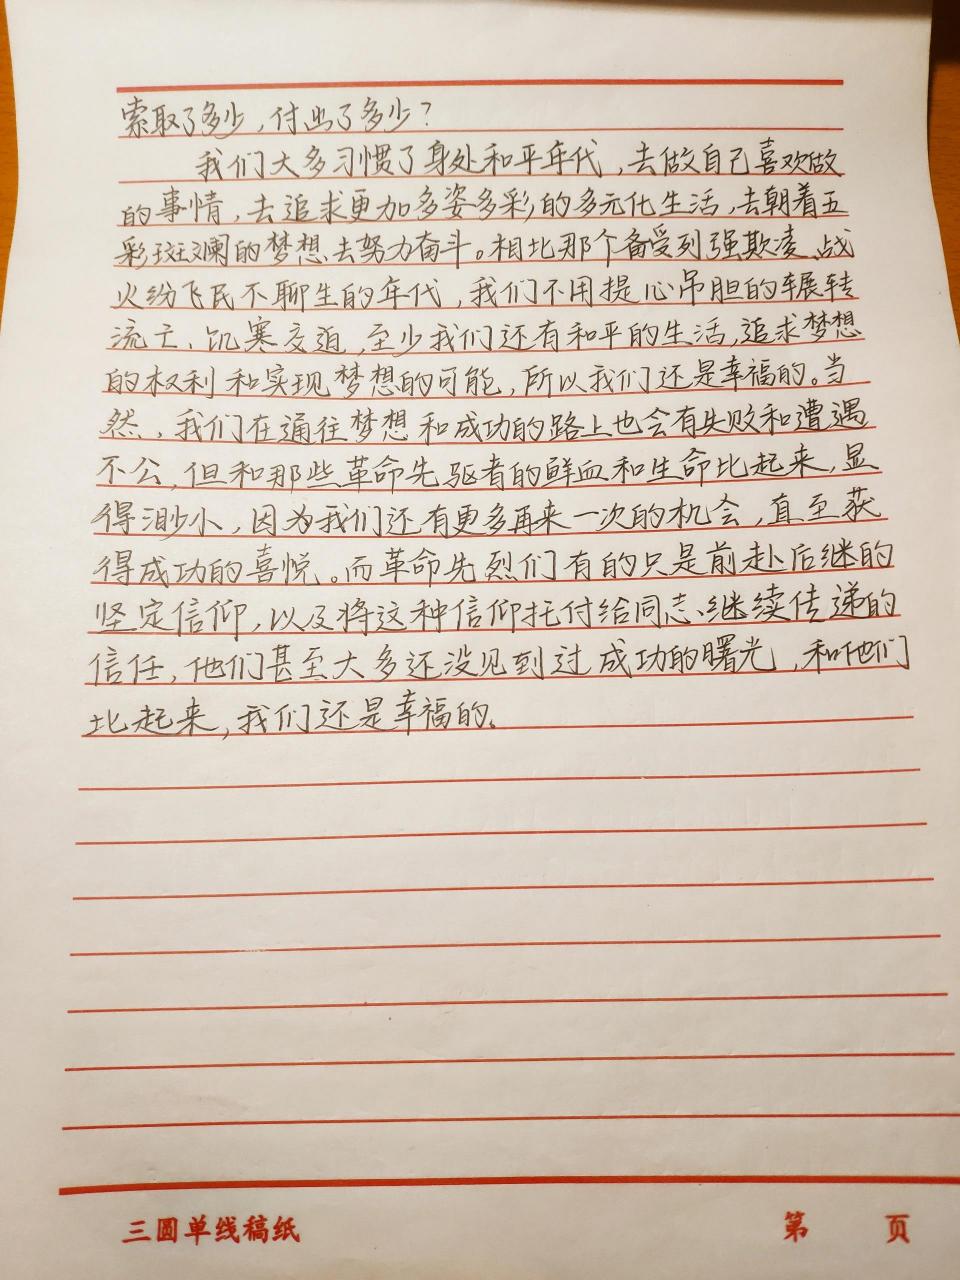 索取了多少，付出了多少？
我们大多习惯了身处和平年代，去做自己喜欢做
的事情，去追求更加多姿多彩的多元化生活，去朝着五
彩斑斓的梦想去努力奋斗。相比那个备受列强欺凌、战
火纷飞民不聊生的年代，我们不用提心吊胆的辗转
流亡、饥寒交迫，至少我们还有和平的生活，追求梦想
的权利和实现梦想的可能，所以我们还是幸福的。当
然，我们在通往梦想和成功的路上也会有失败和遭遇
不公，但和那些革命先驱者的鲜血和生命比起来，显
得渺小，因为我们还有更多再来一次的机会，直至获
得成功的喜悦。而革命先烈们有的只是前赴后继的
坚定信仰，以及将这种信仰托付给同志继续传递的
信任，他们甚至大多还没见到过成功的曙光，和他们
比起来，我们还是幸福的。
三圆单线稿纸
第 页